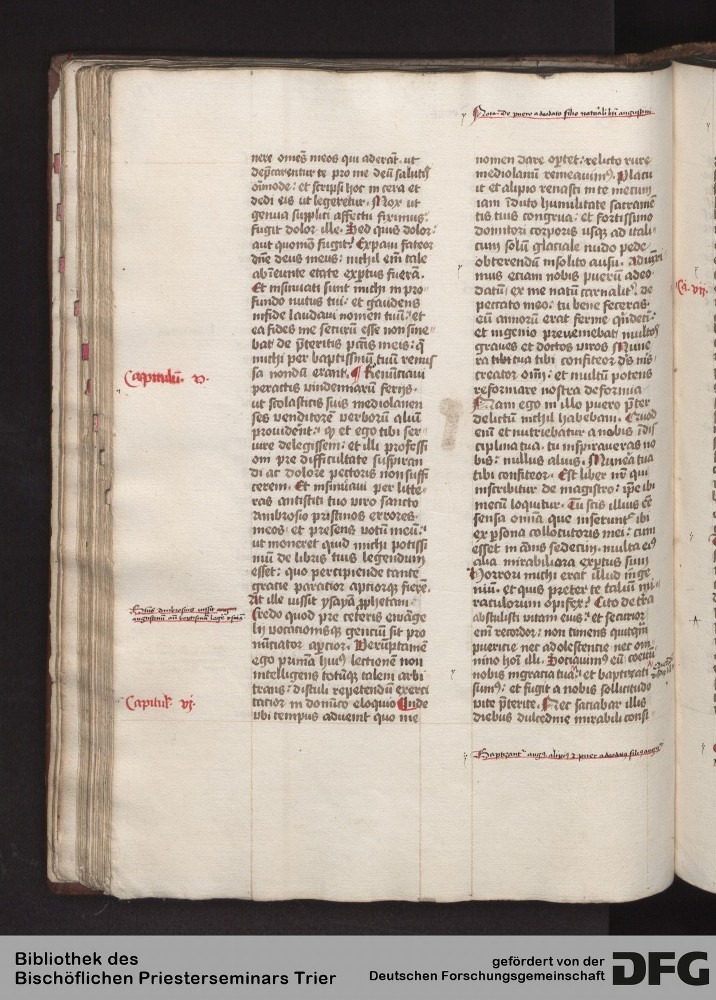 Nota de puero adeodato filio naturali bti augustini
nere om̄es meos qui aderāt. ut
dep̄carentur te pro me deū salutis
oīmode: et scripsi hoc in cera et
dedi eis ut legeretur. Mox ut
genua supplici affectu fiximus
fugit dolor ille. Sed quis dolor
aut quomō fugit? Expaui fateor
dn̄e deus meus: nichil em̄ tale
ab īeunte etate exp̄tus fuerā.
Et insinuati sunt michi in pro
fundo nutus tui: et gaudens
in fide laudaui nomen tuū: et
ea fides me securū esse non sine
bat de p̄teritis pctīs meis: q̄
michi per baptissmū tuū remis
sa nondū erant. Renunciaui
Capitulū. v.
peractis vindemiarū ferijs.
ut scolasticis suis mediolanen
ses venditorē verborū aliū
prouiderēt: qz et ego tibi ser
uire delegissem: et illi professi
oni pre difficultate suspiran
di ac dolore pectoris non suffi
cerem. Et insinuaui per litte
ras antistiti tuo viro sancto
Ambrosio pristinos errores
meos. et presens votū meū.
ut moneret quid michi potissi
mū de libris tuis legendum
esset: quo percipiende tante
gratie paratior aptiorqz fierē.
At ille iussit ysayā ꝓphetam
Credo quod pre ceteris ewāge
lij vocationisqz gentiū sit pro
nūciator apertior. Verūptamē
ego primā huiꝰ lectionē non
intelligens totūqz talem arbi
trans: distuli repetendū exerci
tatior in dominico eloquio Inde
Capitulū. vj.
vbi tempus aduenit quo me
nomen dare oꝑtet: relicto rure
mediolanū remeauimꝰ. Placu
it et alipio renasci in te mecum
iam īduto humilitate sacramē
tis tuis congrua: et fortissimo
domitori corporis usqz ad itali
cum solū glaciale nudo pede
obterendū insolito ausu. Adiūxi
mus eciam nobis puerū adeo
datū ex me natū carnaliter de
peccato meo: tu bene feceras
eū annorū erat ferme quīdecī:
et ingenio preueniebat multos
graues et doctos viros Mune
ra tibi tua tibi confiteor dn̄s nr̄s
creator om̄i: et multū potens
reformare nostra deformia
Nam ego in illo puero p̄ter
delictū nichil habebam. Quod
enī et nutriebatur a nobis ī dis
ciplina tua. tu īnspiraueras no
bis: nullus alius. Munera tua
tibi confiteor. Est liber nr̄ qui
inscribitur de magistro: ip̄e ibi
mecū loquitur. Tu scis illius eē
sensa omīa que inserunt̄ ibi
ex ꝑsona collocutoris mei: cum
esset in annis sedecim. multa eiꝰ
alia mirabiliora exꝑtus sum
Horrori michi erat illud inge
niū. et quis preter te taliū mi
raculorum opifex? Cito de terra
abstulisti vitam eius: et securior
eū recordor: non timens quicqm̄
puericie nec adolescentie nec om
nino hoī illi. Sociauimꝰ eū coeuū
nobis in gracia tua: et baptizati
sumꝰ: et fugit a nobis sollicitudo
vite p̄terite. Nec saciabar illis
diebus dulcedine mirabili consi
Ca. vij.
Baptizant̄ augꝰ alipiꝰ et puer adeodatus filiꝰ augꝰ
Bibliothek des
Bischöflichen Priesterseminars Trier
gefördert von der
Deutschen Forschungsgemeinschaft
DFG